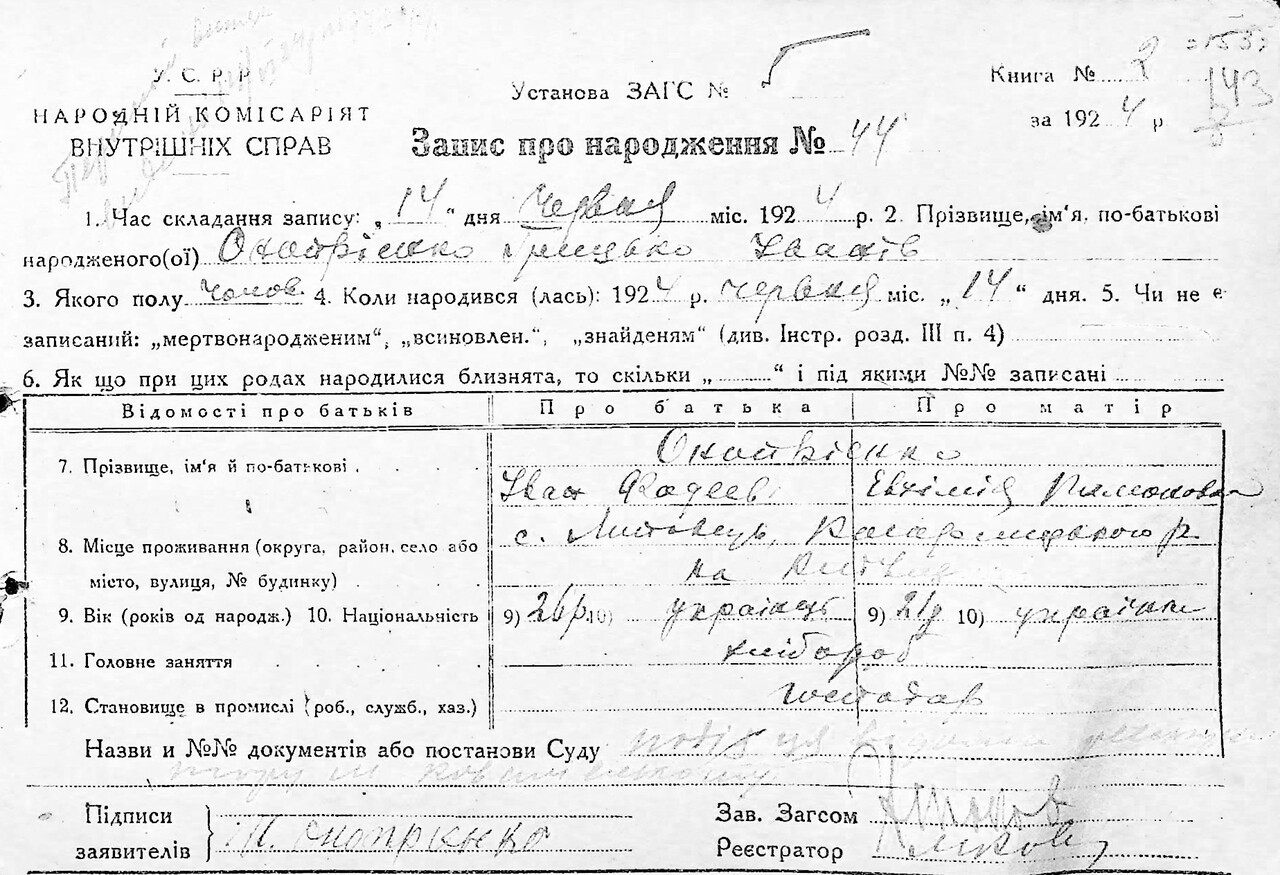 У. С. Р. Р
НАРОДНІЙ КОМІСАРІЯТ
ВНУТРІШНІХ СПРАВ
Установа ЗАГС №
Книга № 2
143
за 1924 р
Запис про народження № 44
1. Час складання запису: „14“ дня червня міс. 1924 р. 2. Прізвище, ім'я, по-батькові
народженого(ої) Онопрієнко Грицько Іванів
3. Якого полу чолов. 4. Коли народився (лась): 1924 р. червня міс. „14“ дня. 5. Чи не є
записаний: „мертвонародженим“, „всиновлен.“, „знайденям“ (див. Інстр. розд. III п. 4)
6. Як що при цих родах народилися близнята, то скільки „ “ і під якими №№ записані
Відомості про батьків Про батька Про матір
7. Прізвище, ім'я й по-батькові Онопрієнко
Іван Фадеєв Евхімія
8. Місце проживання (округа, район, село або с. Литовець,
місто, вулиця, № будинку) на
9. Вік (років од народж.) 10. Національність 9) 26 р. 10) українець 9) 21 р 10) українка
11. Головне заняття хлібороб
12. Становище в промислі (роб., служб., хаз.) господар
Назви и №№ документів або постанови Суду
Підписи
заявителів
Онопрієнко
Зав. Загсом
Реєстратор